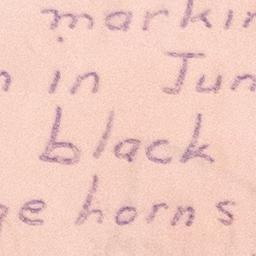 markin
n in Jun
black
ge horns